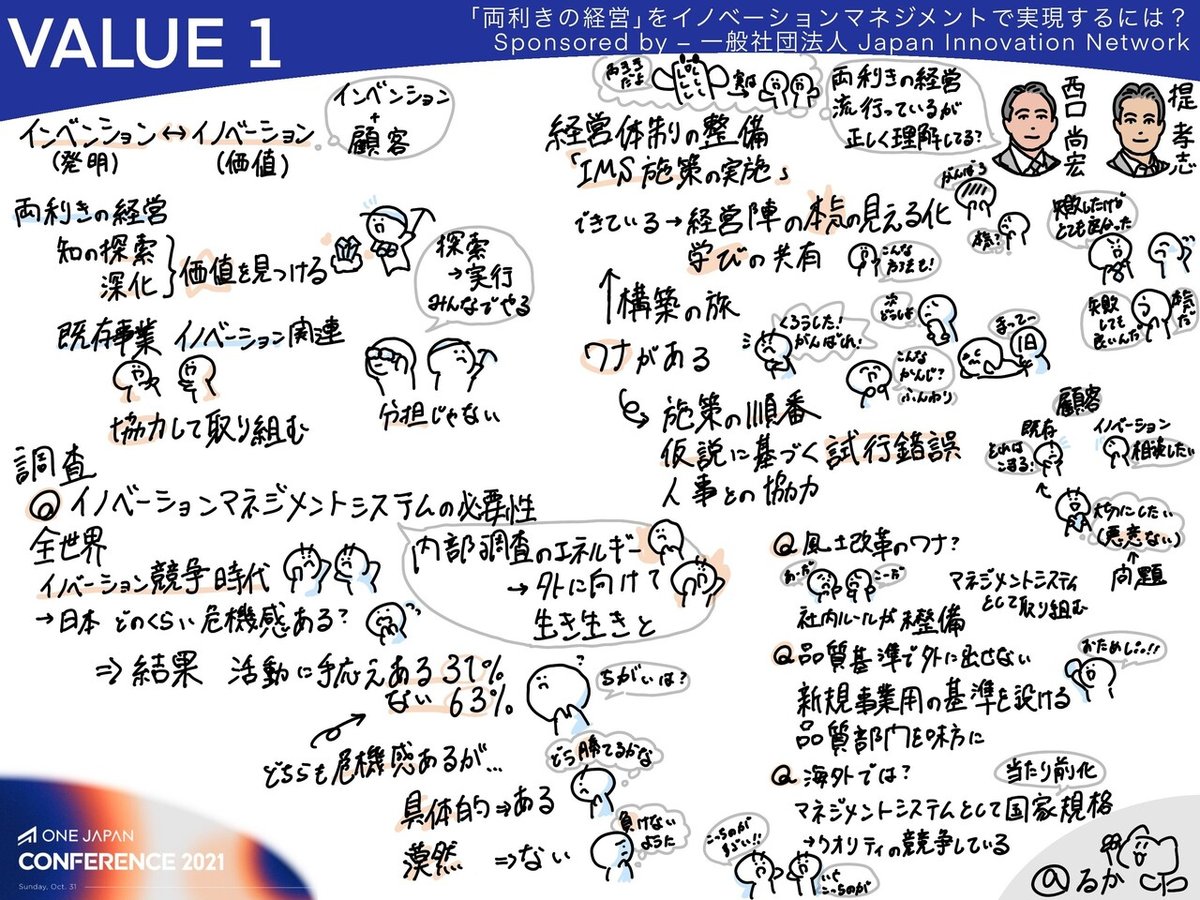 VALUE 1
「両利きの経営」をイノベーションマネジメントで実現するには？
Sponsored by – 一般社団法人 Japan Innovation Network
インベンション↔イノベーション
(発明)
(価値)
インベンション
+
顧客
両利きの経営
知の探索
深化
価値を見つける
探索
→実行
みんなでやる
既存事業 イノベーション関連
協力して取り組む
分担じゃない
調査
◎イノベーションマネジメントシステムの必要性
全世界
イノベーション競争時代
→日本 どのくらい危機感ある？
内部調査のエネルギー
→外に向けて
生き生きと
⇒結果 活動に手応えある 37%
ない 63%
ちがいは？
どちらも危機感あるが…
どう勝てるかな
具体的⇒ある
負けない
ように
漠然 ⇒ない
両きき
だよ
実は
両利きの経営
流行っているが
正しく理解してる？
西口 尚宏
提 孝志
経営体制の整備
「IMS施策の実施」
できている→経営陣の本気の見える化
学びの共有
がんばろ
本気？
こんな
方法も！
失敗したけど
とても良かった
失敗
しても
良いんだ
本気
だ
↑構築の旅
ワナがある
くろうした！
がんばれ！
次
どうしよ
こんな
かんじ？
ふんわり
まって〜
旧
施策の順番
仮説に基づく試行錯誤
人事との協力
顧客
既存
イノベーション
それは
こまる！
相談したい
大切にしたい
(悪意ない)
↑
問題
Q 風土改革のワナ？
あーだ
こーだ
社内ルールが未整備
マネジメントシステム
として取り組む
Q 品質基準で外に出せない
おためし☆!!
新規事業用の基準を設ける
品質部門を味方に
Q 海外では？
当たり前化
マネジメントシステムとして国家規格
→クオリティの競争している
こっちのが
すごい!!
いや
こっちのが
@るか
ONE JAPAN
CONFERENCE 2021
Sunday, Oct. 31